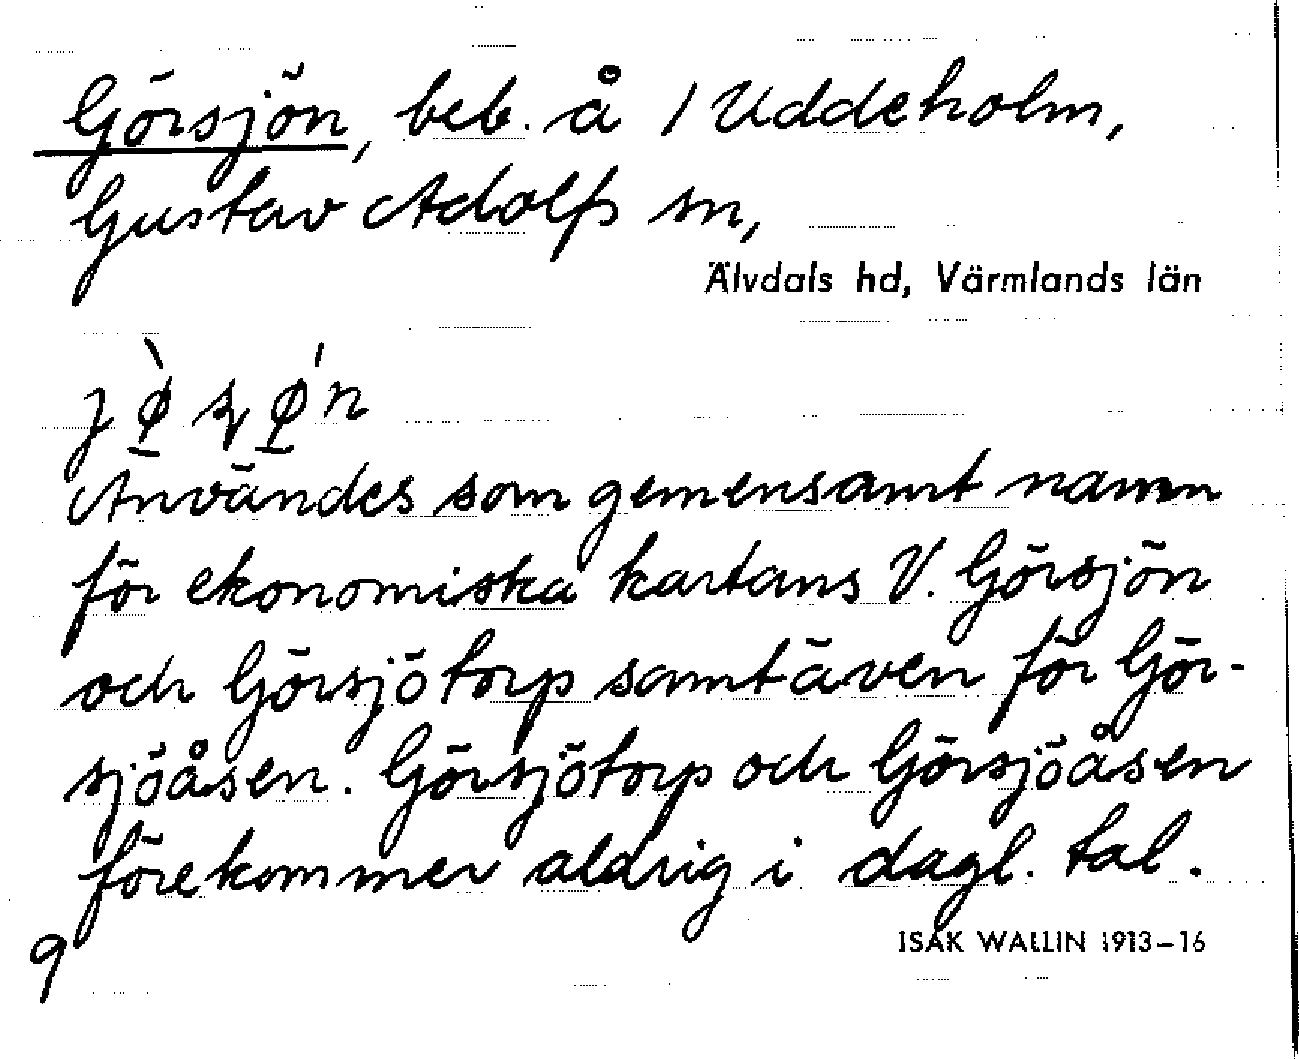 Görsjön, beb. å 1 Uddeholm,
Gustav Adolfs sn,
Älvdals hd, Värmlands län
Användes som gemensamt namn
för ekonomiska kartans V. Görsjön
och Görsjötorp samt även för Gör-
sjöåsen. Görsjötorp och Görsjöåsen
förekommer aldrig i dagl. tal.
9
ISAK WALLIN 1913–16